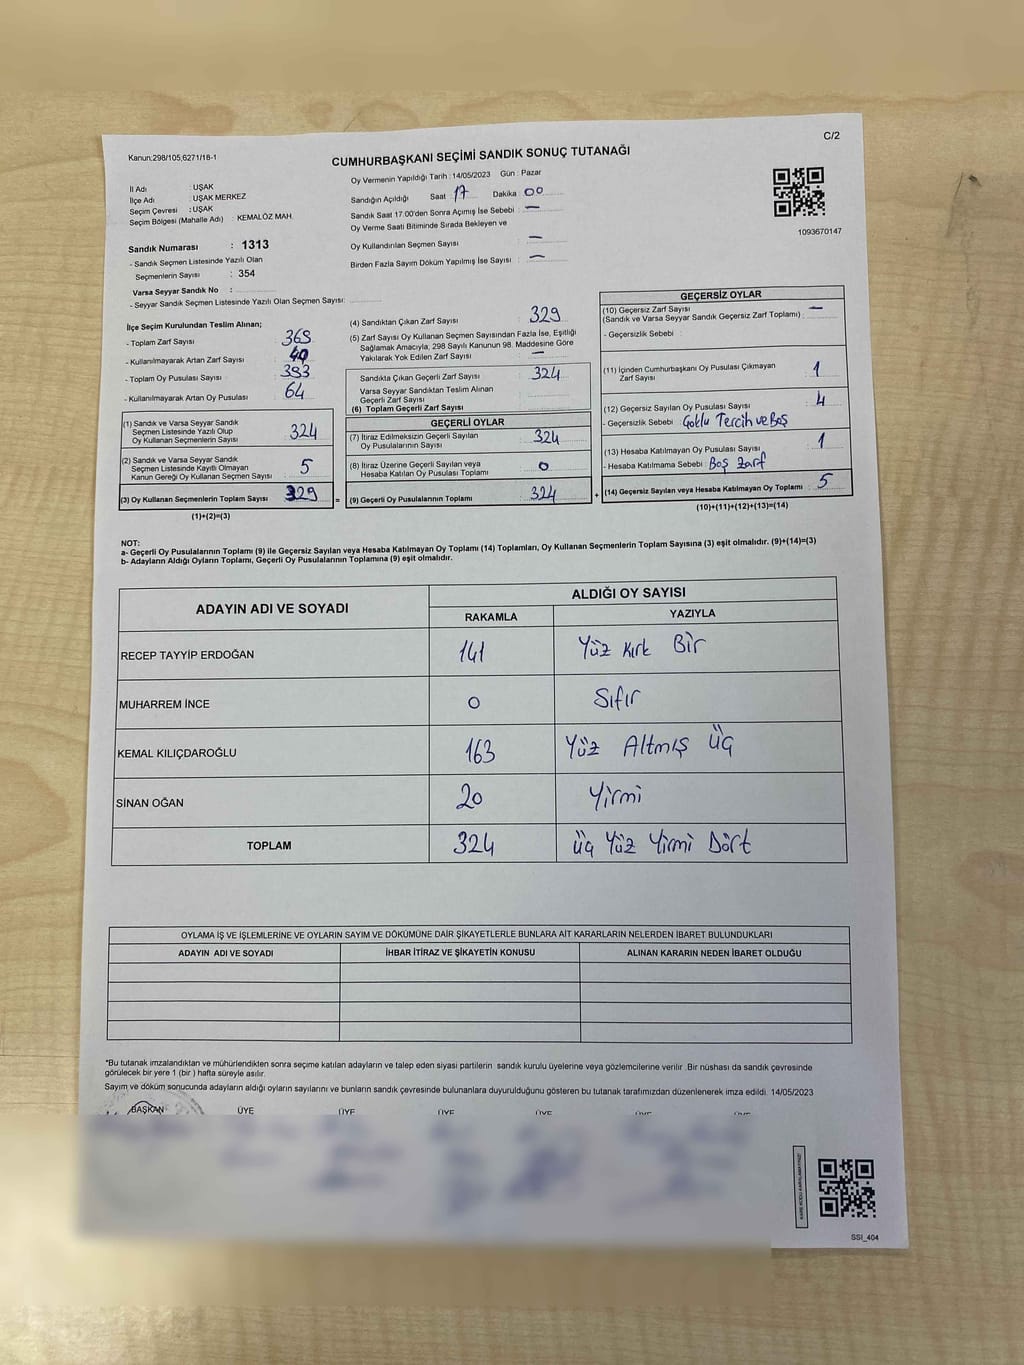 C/2
Kanun:298/105,6271/18-1
CUMHURBAŞKANI SEÇİMİ SANDIK SONUÇ TUTANAĞI
İl Adı : UŞAK
İlçe Adı : UŞAK MERKEZ
Seçim Çevresi : UŞAK
Seçim Bölgesi (Mahalle Adı) : KEMALÖZ MAH.
Sandık Numarası : 1313
- Sandık Seçmen Listesinde Yazılı Olan
Seçmenlerin Sayısı : 354
Varsa Seyyar Sandık No :
- Seyyar Sandık Seçmen Listesinde Yazılı Olan Seçmen Sayısı:
Oy Vermenin Yapıldığı Tarih : 14/05/2023 Gün : Pazar
Sandığın Açıldığı Saat 17 Dakika 00
Sandık Saat 17.00'den Sonra Açımış İse Sebebi : —
Oy Verme Saati Bitiminde Sırada Bekleyen ve
Oy Kullandırılan Seçmen Sayısı : —
Birden Fazla Sayım Döküm Yapılmış İse Sayısı : —
1093670147
İlçe Seçim Kurulundan Teslim Alınan;
- Toplam Zarf Sayısı : 369
- Kullanılmayarak Artan Zarf Sayısı : 40
- Toplam Oy Pusulası Sayısı : 393
- Kullanılmayarak Artan Oy Pusulası : 64
(1) Sandık ve Varsa Seyyar Sandık
Seçmen Listesinde Yazılı Olup
Oy Kullanan Seçmenlerin Sayısı : 324
(2) Sandık ve Varsa Seyyar Sandık
Seçmen Listesinde Kayıtlı Olmayan
Kanun Gereği Oy Kullanan Seçmen Sayısı : 5
(3) Oy Kullanan Seçmenlerin Toplam Sayısı : 329
(1)+(2)=(3)
(4) Sandıktan Çıkan Zarf Sayısı : 329
(5) Zarf Sayısı Oy Kullanan Seçmen Sayısından Fazla İse, Eşitliği
Sağlamak Amacıyla, 298 Sayılı Kanunun 98. Maddesine Göre
Yakılarak Yok Edilen Zarf Sayısı : —
Sandıkta Çıkan Geçerli Zarf Sayısı : 324
Varsa Seyyar Sandıktan Teslim Alınan
Geçerli Zarf Sayısı
(6) Toplam Geçerli Zarf Sayısı
GEÇERLİ OYLAR
(7) İtiraz Edilmeksizin Geçerli Sayılan
Oy Pusulalarının Sayısı : 324
(8) İtiraz Üzerine Geçerli Sayılan veya
Hesaba Katılan Oy Pusulası Toplamı : 0
= (9) Geçerli Oy Pusulalarının Toplamı : 324 +
GEÇERSİZ OYLAR
(10) Geçersiz Zarf Sayısı
(Sandık ve Varsa Seyyar Sandık Geçersiz Zarf Toplamı) : —
- Geçersizlik Sebebi :
(11) İçinden Cumhurbaşkanı Oy Pusulası Çıkmayan
Zarf Sayısı : 1
(12) Geçersiz Sayılan Oy Pusulası Sayısı : 4
- Geçersizlik Sebebi Çoklu Tercih ve Boş
(13) Hesaba Katılmayan Oy Pusulası Sayısı : 1
- Hesaba Katılmama Sebebi : Boş Zarf
(14) Geçersiz Sayılan veya Hesaba Katılmayan Oy Toplamı : 5
(10)+(11)+(12)+(13)=(14)
NOT:
a- Geçerli Oy Pusulalarının Toplamı (9) ile Geçersiz Sayılan veya Hesaba Katılmayan Oy Toplamı (14) Toplamları, Oy Kullanan Seçmenlerin Toplam Sayısına (3) eşit olmalıdır. (9)+(14)=(3)
b- Adayların Aldığı Oyların Toplamı, Geçerli Oy Pusulalarının Toplamına (9) eşit olmalıdır.
ADAYIN ADI VE SOYADI ALDIĞI OY SAYISI
RAKAMLA YAZIYLA
RECEP TAYYİP ERDOĞAN 141 Yüz Kırk Bir
MUHARREM İNCE 0 Sıfır
KEMAL KILIÇDAROĞLU 163 Yüz Altmış Üç
SİNAN OĞAN 20 Yirmi
TOPLAM 324 Üç Yüz Yirmi Dört
OYLAMA İŞ VE İŞLEMLERİNE VE OYLARIN SAYIM VE DÖKÜMÜNE DAİR ŞİKAYETLERLE BUNLARA AİT KARARLARIN NELERDEN İBARET BULUNDUKLARI
ADAYIN ADI VE SOYADI İHBAR İTİRAZ VE ŞİKAYETİN KONUSU ALINAN KARARIN NEDEN İBARET OLDUĞU
*Bu tutanak imzalandıktan ve mühürlendikten sonra seçime katılan adayların ve talep eden siyasi partilerin sandık kurulu üyelerine veya gözlemcilerine verilir. Bir nüshası da sandık çevresinde
görülecek bir yere 1 (bir) hafta süreyle asılır.
Sayım ve döküm sonucunda adayların aldığı oyların sayılarını ve bunların sandık çevresinde bulunanlara duyurulduğunu gösteren bu tutanak tarafımızdan düzenlenerek imza edildi. 14/05/2023
BAŞKAN ÜYE ÜYE ÜYE ÜYE ÜYE ÜYE
KARE KODU KARALAMAYINIZ!
SSI_404